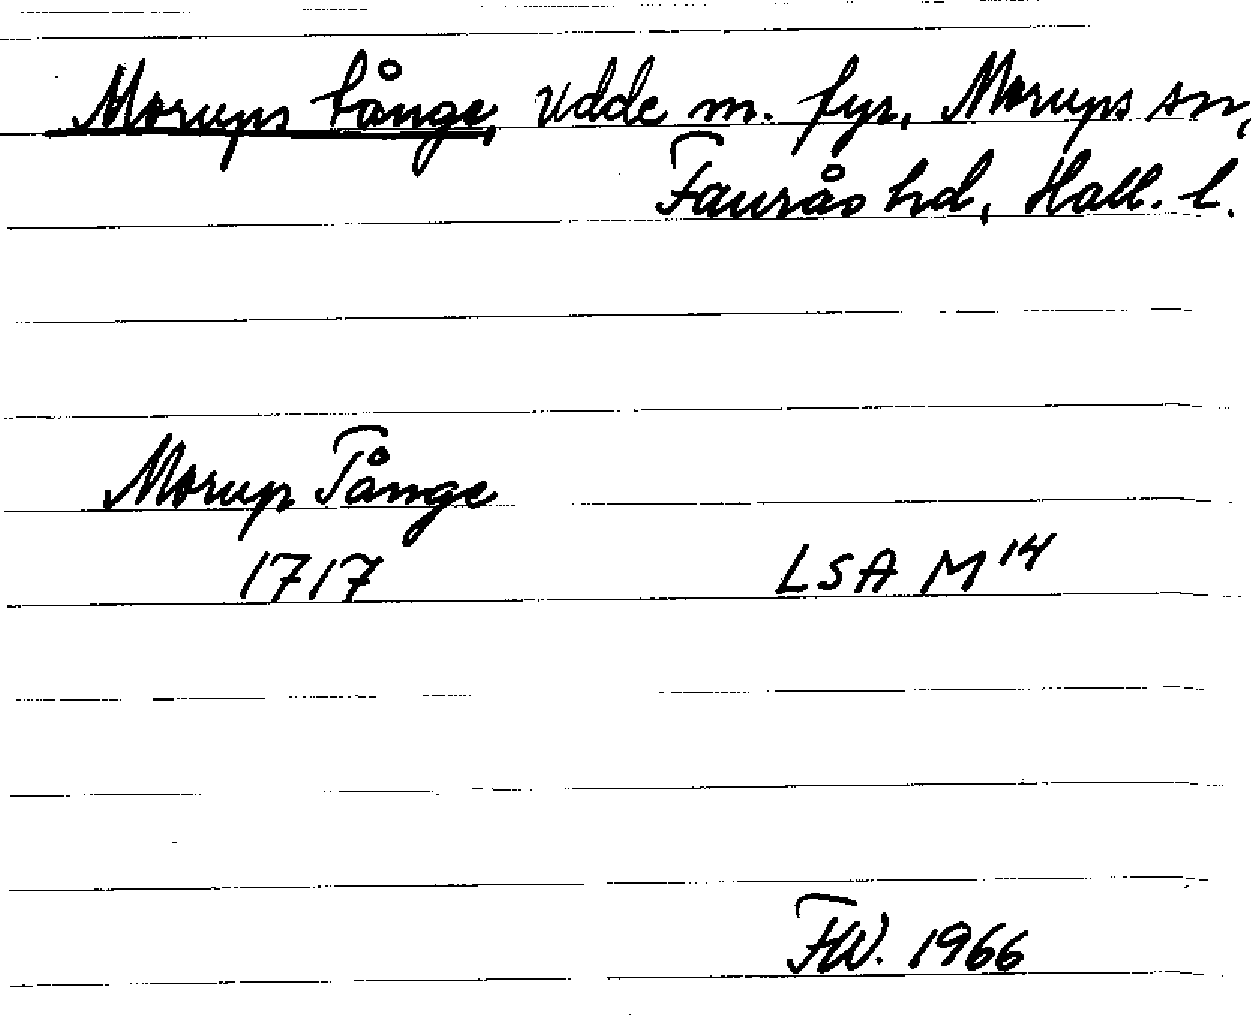 Morups tånge, udde m. fyr, Morups sn,
Faurås hd, Hall. l.
Morup Tånge
1717 LSA M14
FW. 1966